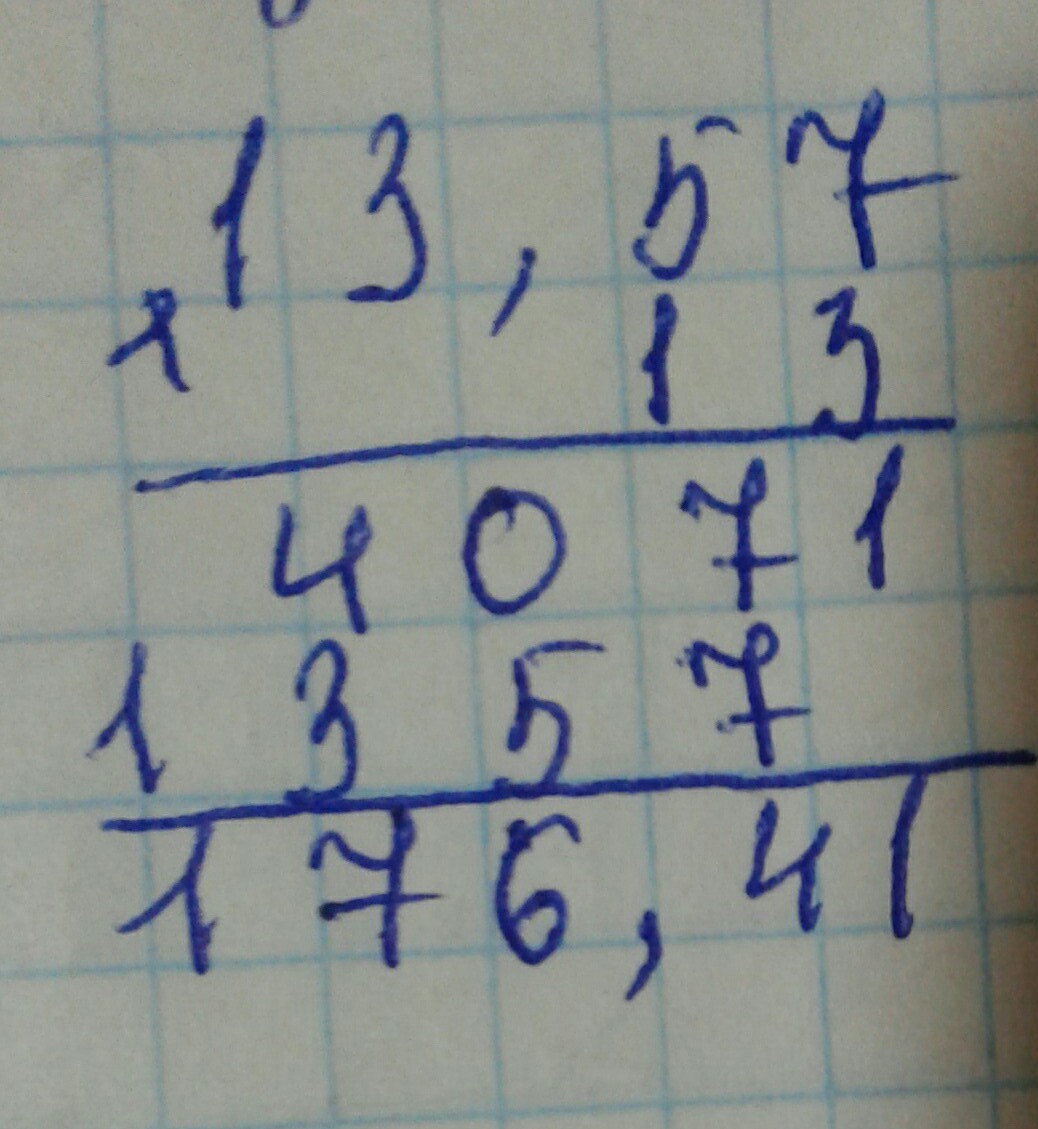 13,57
x 13
4071
1357
176,41